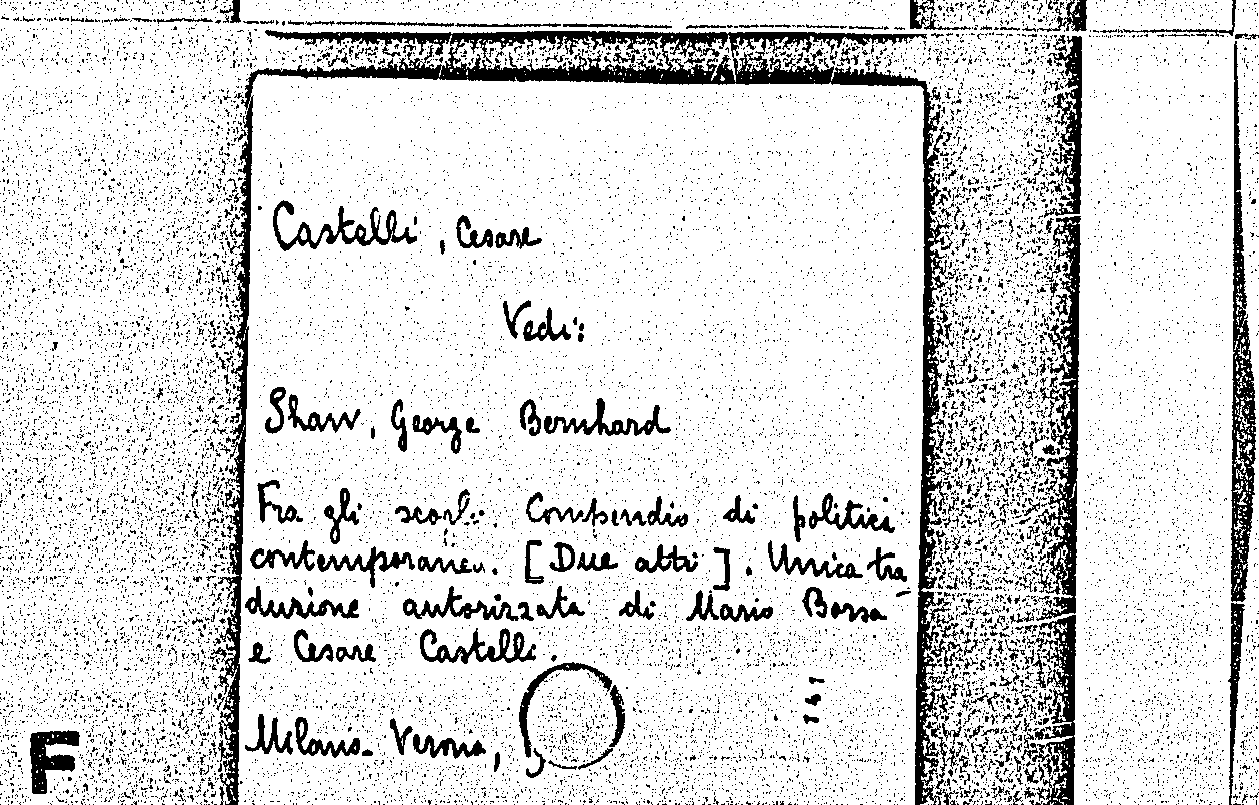 Castelli, Cesare
Vedi:
Shaw, George Bernhard
Fra gli scogli. Compendio di politica
contemporanea. [Due atti]. Unica tra-
duzione autorizzata di Mario Borsa
e Cesare Castelli.
Milano-Verona,
141
F